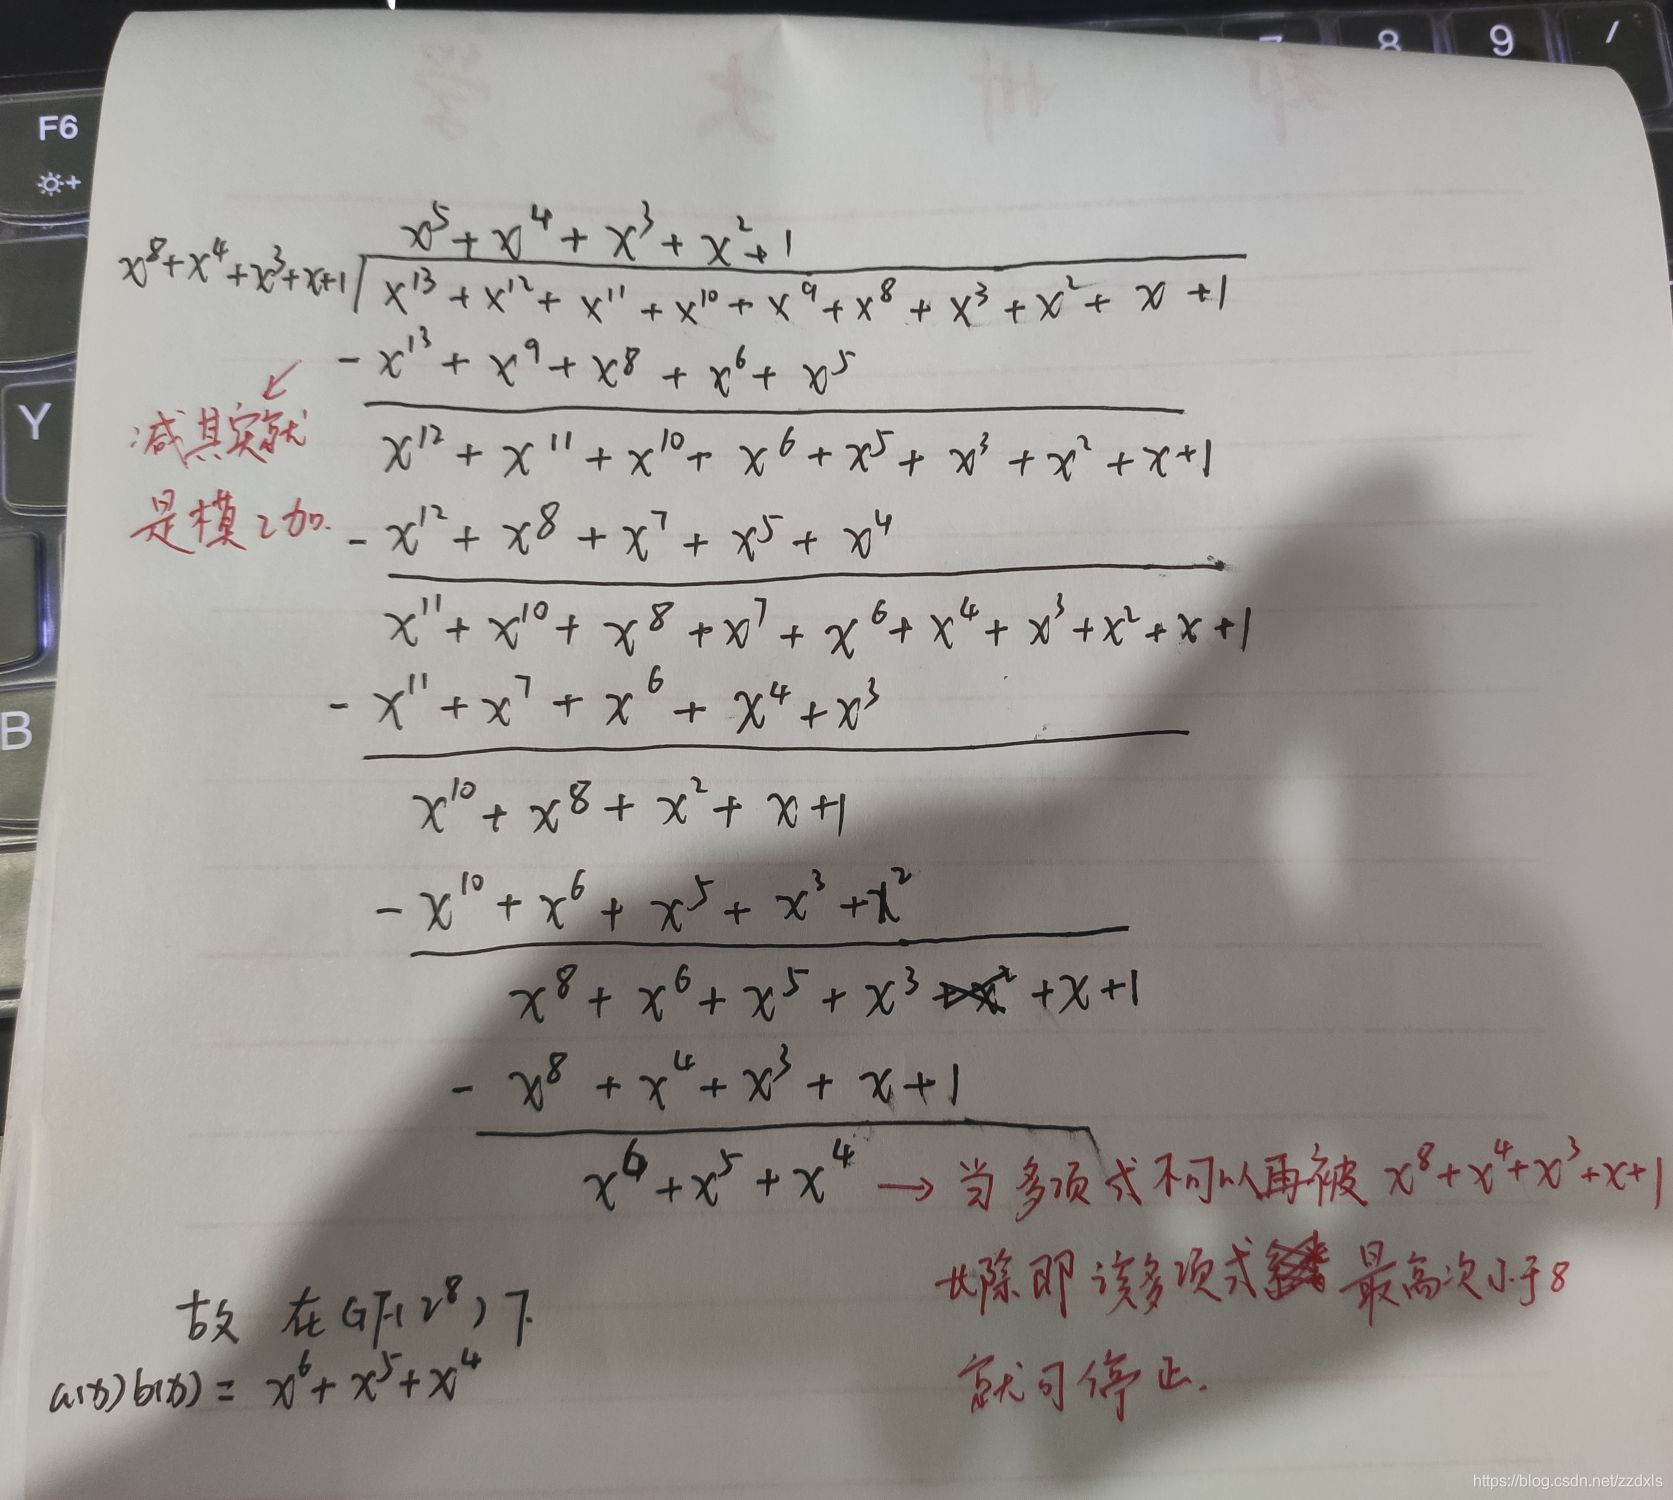 7 8 9 /
F6
Y
B
x⁵ + x⁴ + x³ + x² + 1
x⁸+x⁴+x³+x+1 x¹³ + x¹² + x¹¹ + x¹⁰ + x⁹ + x⁸ + x³ + x² + x + 1
- x¹³ + x⁹ + x⁸ + x⁶ + x⁵
减其实就
x¹² + x¹¹ + x¹⁰ + x⁶ + x⁵ + x³ + x² + x + 1
是模2加.
- x¹² + x⁸ + x⁷ + x⁵ + x⁴
x¹¹ + x¹⁰ + x⁸ + x⁷ + x⁶ + x⁴ + x³ + x² + x + 1
- x¹¹ + x⁷ + x⁶ + x⁴ + x³
x¹⁰ + x⁸ + x² + x + 1
- x¹⁰ + x⁶ + x⁵ + x³ + x²
x⁸ + x⁶ + x⁵ + x³ + x + 1
- x⁸ + x⁴ + x³ + x + 1
x⁶ + x⁵ + x⁴ → 当多项式不可以再被 x⁸+x⁴+x³+x+1
除即该多项式 最高次小于8
就可停止.
故 在GF(2⁸)下.
a(x)b(x) = x⁶ + x⁵ + x⁴
https://blog.csdn.net/zzdxls